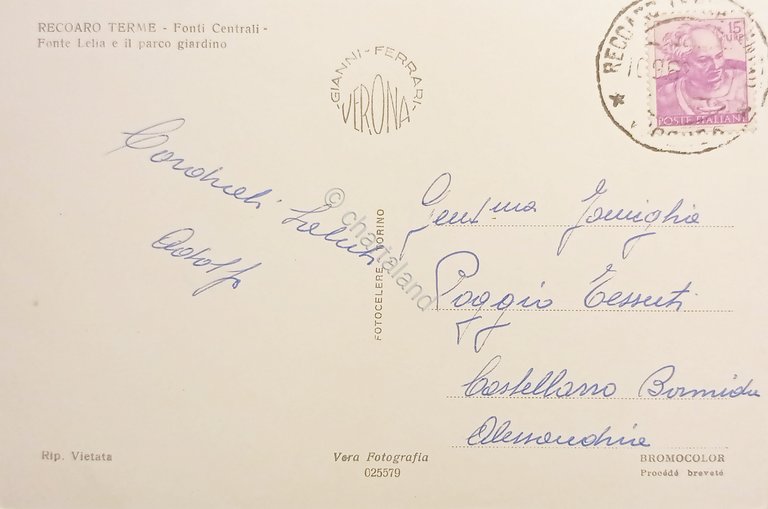 RECOARO TERME - Fonti Centrali -
Fonte Lelia e il parco giardino
GIANNI-FERRARI
VERONA
RECOARO
15
LIRE
POSTE ITALIANE
Cordiali Saluti
Adolfo
Gent.ma Famiglia
Poggio Tessuti
Castellazzo Bormida
Alessandria
FOTOCELERE TORINO
© chartaland
Rip. Vietata
Vera Fotografia
025579
BROMOCOLOR
Procédé breveté